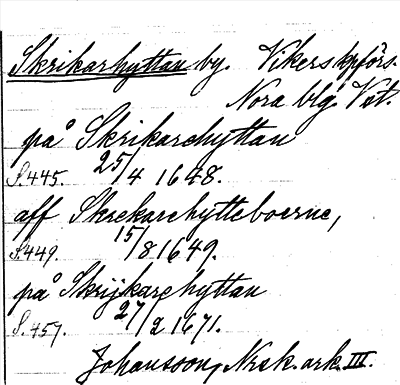 Skrikarhyttan by. Vikers kpförs.
Nora blg. Vst.
på Skrikarehyttan
S.445. 25/4 1648.
aff Skrekarehytteboerne,
S.449. 15/8 1649.
på Skrijkarehyttan
S.457. 27/2 1671.
Johansson, Nrck. ark. III.